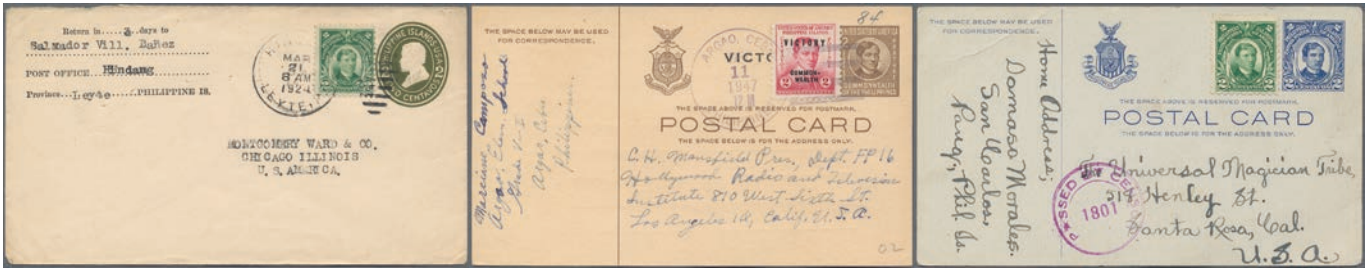 Return in 3 days to
Salvador Vill. Bañez
POST OFFICE Hindang
Province Leyte PHILIPPINE IS.
MAR
21
8 AM
1924
LEYTE,
PHILIPPINE ISLANDS U.S.A.
TWO CENTAVOS
MONTGOMERY WARD & CO.
CHICAGO ILLINOIS
U. S. AMERICA.
THE SPACE BELOW MAY BE USED
FOR CORRESPONDENCE.
Argao, Cebu
Philippines
84
VICTO
ARGAO, CEBU
11
1947
VICTORY
COMMON-
WEALTH
2 2
UNITED STATES OF AMERICA
COMMONWEALTH
OF THE PHILIPPINES
THE SPACE ABOVE IS RESERVED FOR POSTMARK.
POSTAL CARD
THE SPACE BELOW IS FOR THE ADDRESS ONLY.
C. H. Mansfield Pres., Dept. FP 16
Hollywood Radio and Television
Institute 810 West Sixth St.
Los Angeles 14, Calif. U.S.A.
02
THE SPACE BELOW MAY BE USED
FOR CORRESPONDENCE.
Home Address;
Damaso Morales.
San Carlos,
Pang., Phil. Is.
2 2
2 2
THE SPACE ABOVE IS RESERVED FOR POSTMARK.
POSTAL CARD
THE SPACE BELOW IS FOR THE ADDRESS ONLY.
PASSED BY CENSOR
1801
Universal Magician Tribe,
518 Henley St.
Santa Rosa, Cal.
U.S.A.